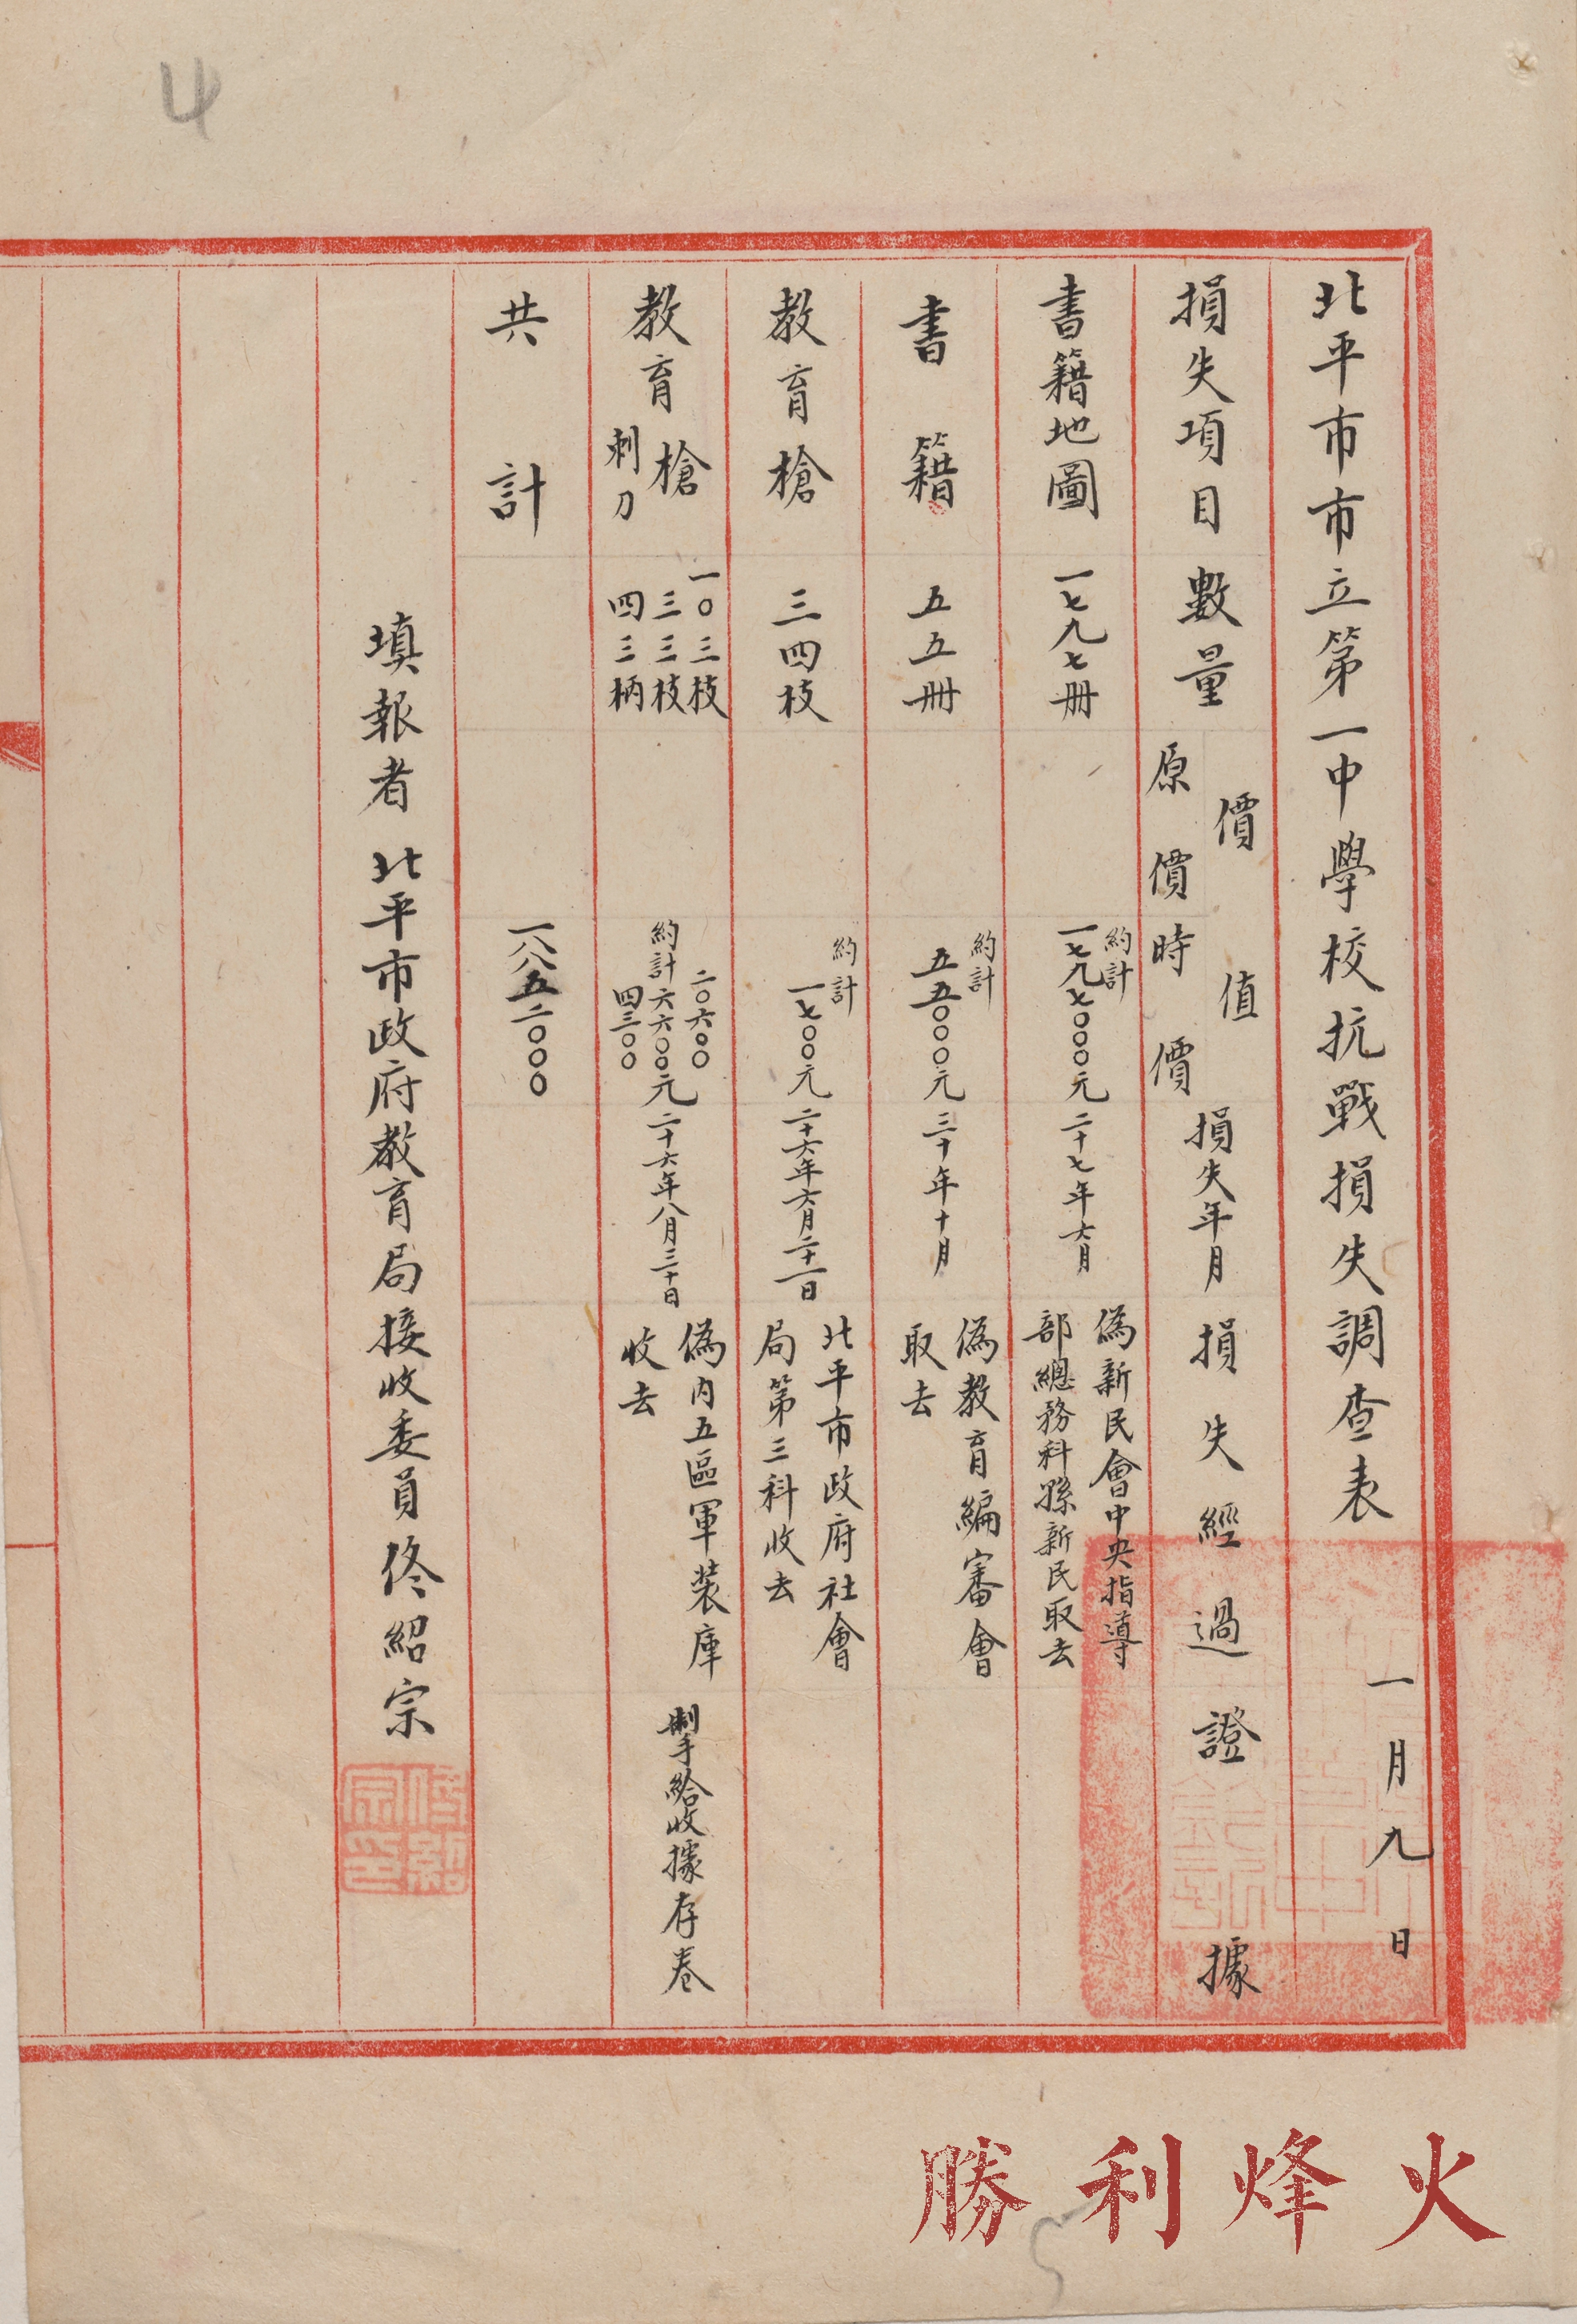 北平市市立第一中學校抗戰損失調查表
一月九日
損失項目
數量
價值
原價
時價
損失年月
損失經過
證據
書籍地圖
一七九七冊
約計
一七九七〇〇〇元
二十七年六月
偽新民會中央指導
部總務科孫新民取去
書籍
五五冊
約計
五五〇〇〇元
三十年十月
偽教育編審會
取去
教育槍
三四枝
約計
一七〇〇元
二十六年六月二十一日
北平市政府社會
局第三科收去
教育槍
刺刀
一〇三枝
三三枝
四三柄
約計
二〇六〇〇
六六〇〇元
四三〇〇
二十六年八月三十日
偽內五區軍裝庫
收去
掣給收據存卷
共計
一八八五二〇〇〇
填報者 北平市政府教育局接收委員佟紹宗
佟紹宗印
4
火烽利勝